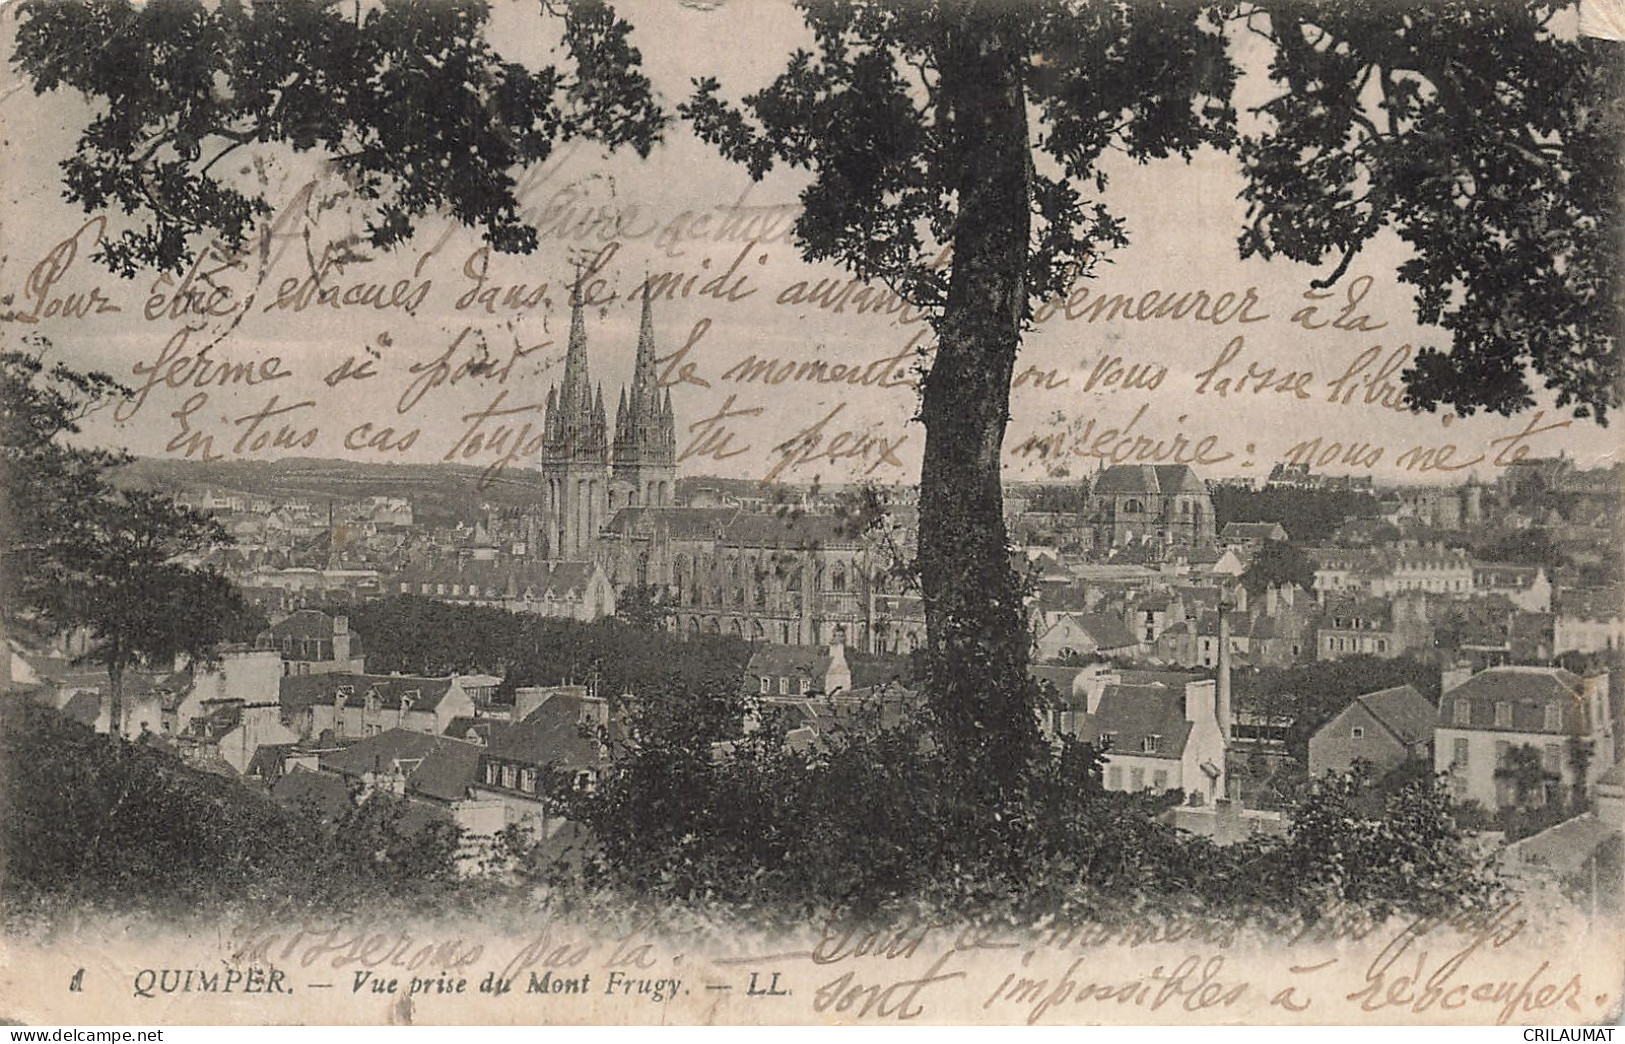 A l'heure actuelle
Pour être évacués dans le midi autant demeurer à la
ferme si pour le moment on vous laisse libre.
En tous cas toujours tu peux m'écrire : nous ne te
laisserons pas là. — Tout ce moment nos pays
sont impossibles à réoccuper.
1 QUIMPER. — Vue prise du Mont Frugy. — LL.
CRILAUMAT